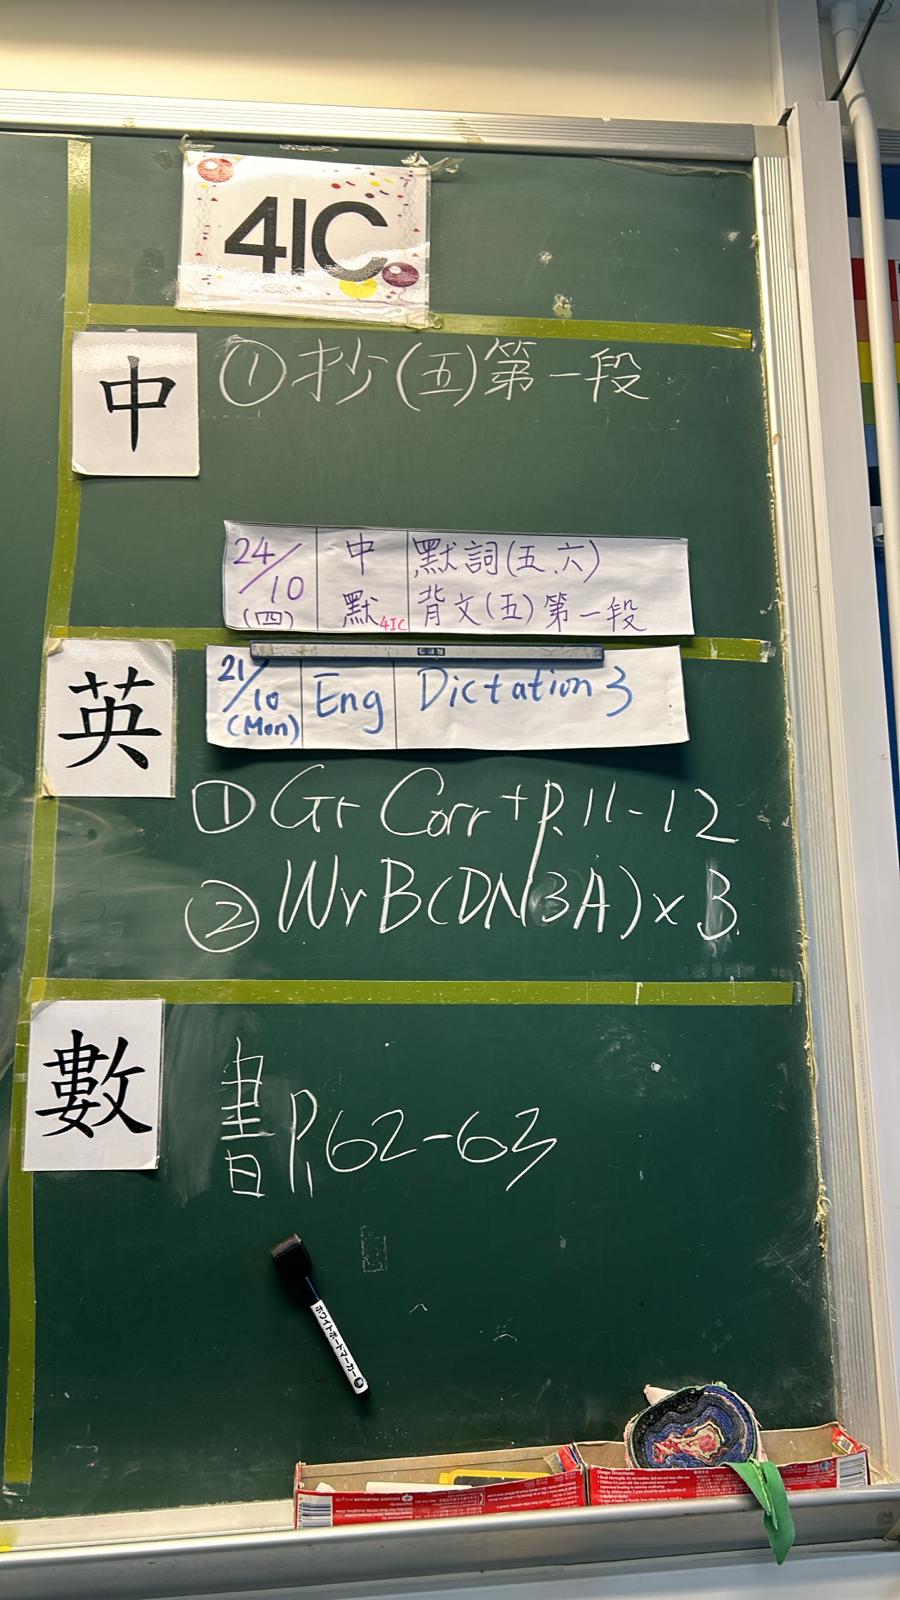 4IC
中
①抄(五)第一段
24/10
(四)
中
默4IC
默詞(五、六)
背文(五)第一段
英
21/10
(Mon)
Eng
Dictation 3
①Gr Corr + p.11-12
②WrB(DN3A)x3
數
書P.62-63
ホワイトボードマーカー